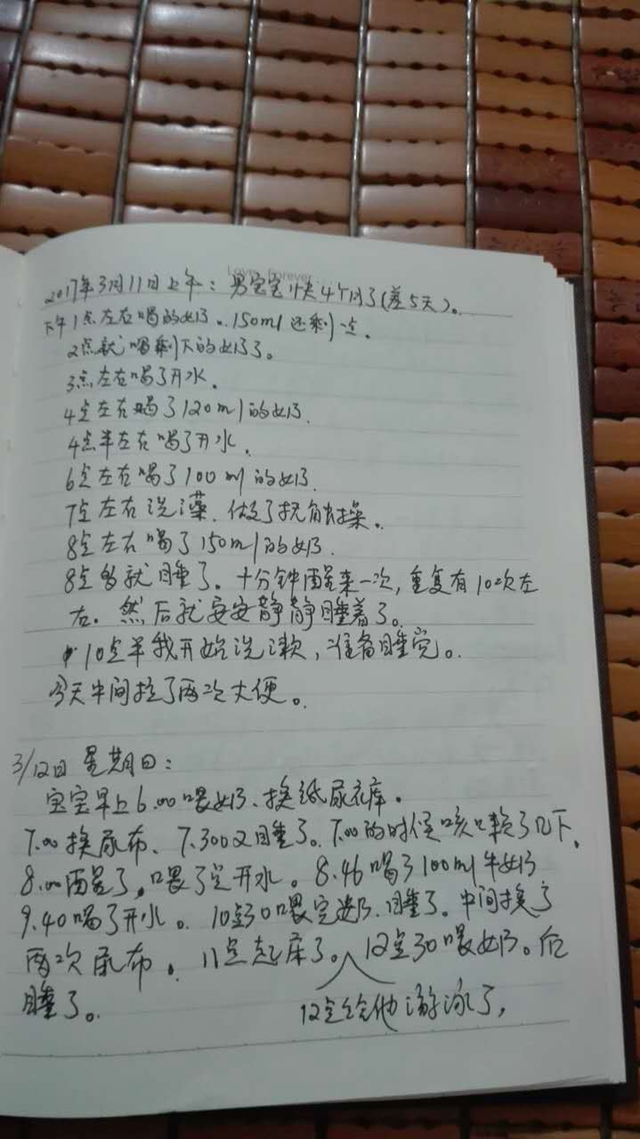 Love Forever
2017年3月11日上午：男宝宝快4个月了(差5天)。
下午1点左右喝的奶。150ml还剩一点。
2点就喝剩下的奶了。
3点左右喝了开水。
4点左右喝了120ml的奶.
4点半左右喝了开水。
6点左右喝了100ml的奶.
7点左右洗澡.做了抚触操。
8点左右喝了150ml的奶.
8点多就睡了。十分钟醒来一次，重复有10次左
右.然后就安安静静睡着了。
10点半我开始洗漱，准备睡觉。
今天中间拉了两次大便。
3/12日 星期日：
宝宝早上6.00喂奶、换纸尿裤。
7.00换尿布、7.30又睡了。7.00的时候咳嗽了几下,
8.00醒了。喂了开水。8.46喝了100ml牛奶
9.40喝了开水。10点30喂完奶.睡了。中间换了
两次尿布。11点起床了。12点30喂奶。后
睡了。
12点给他游泳了,